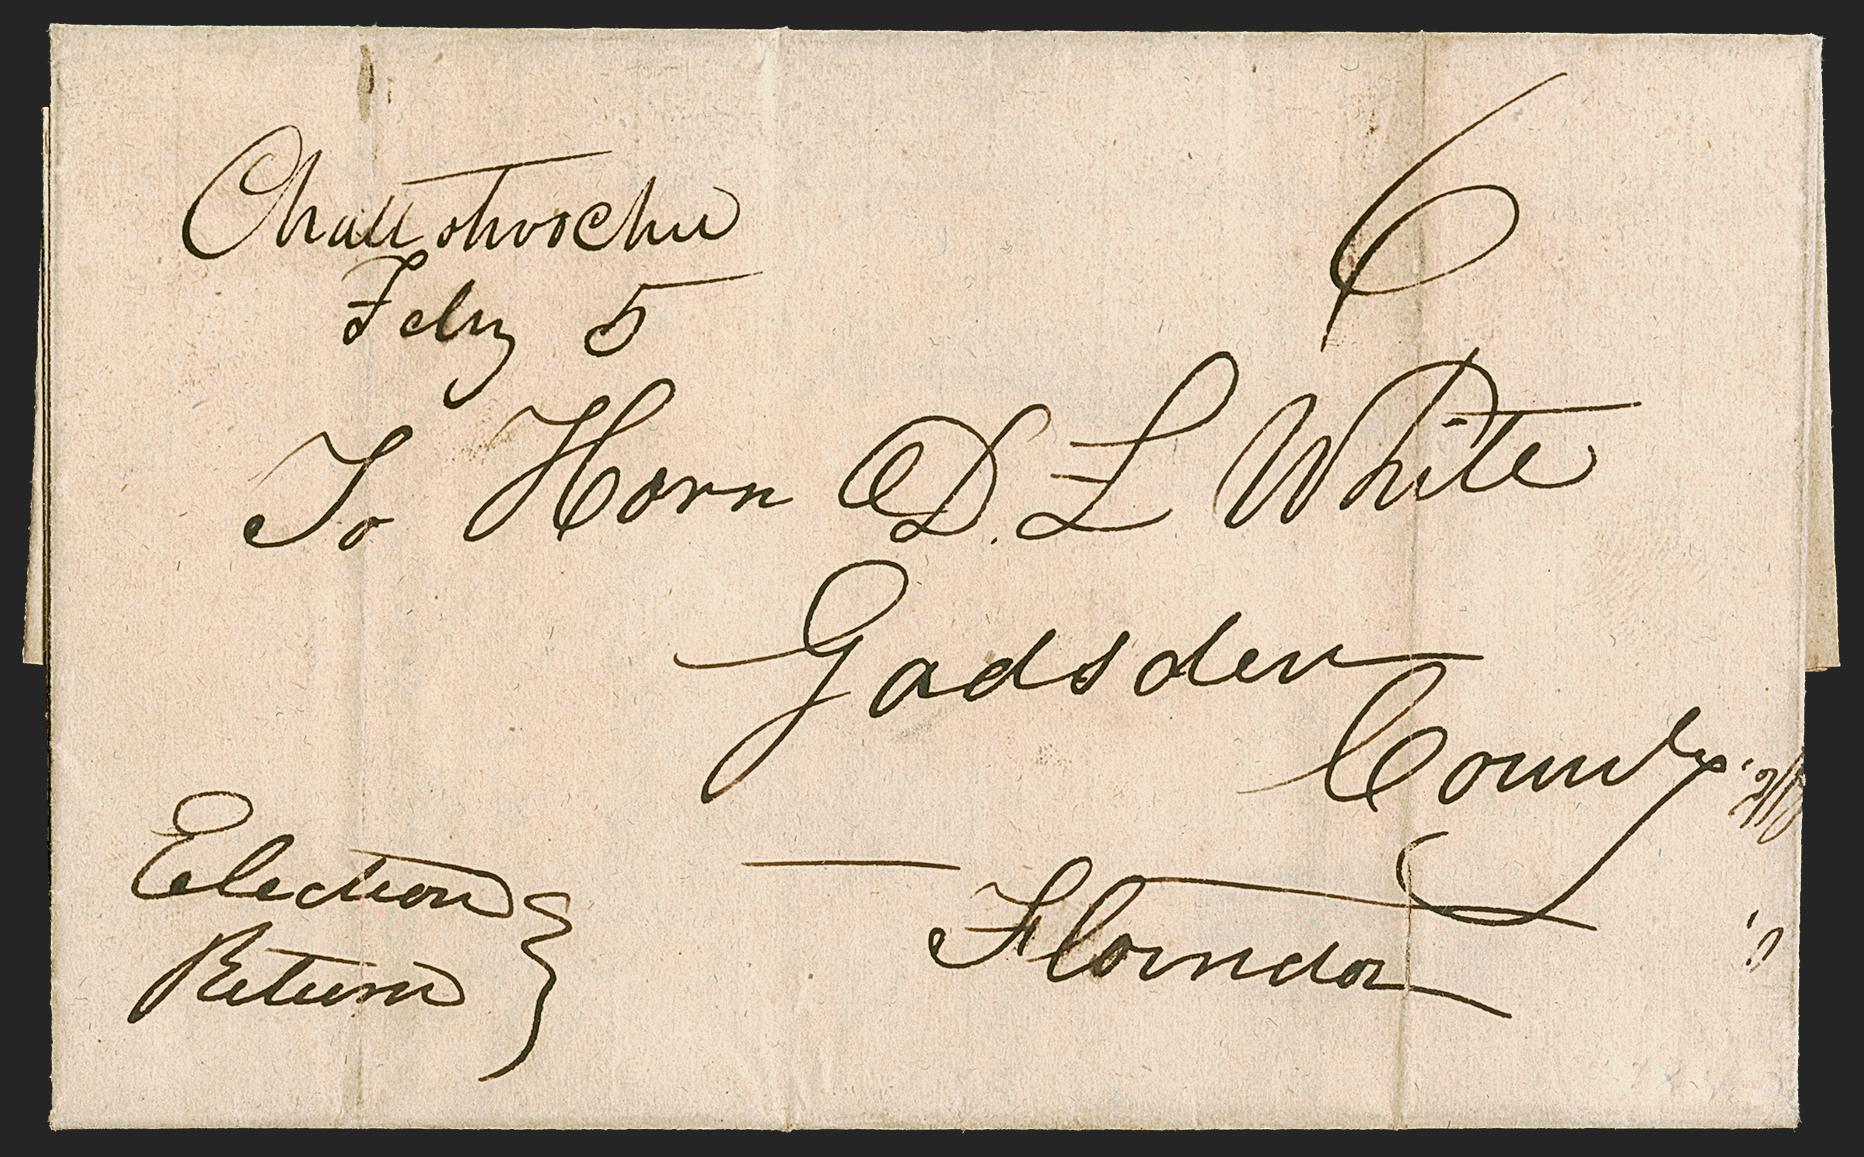 Chattohoochee
Feby 5
6
To Honn D. L White
Gadsden
County
Florida
Election
Return